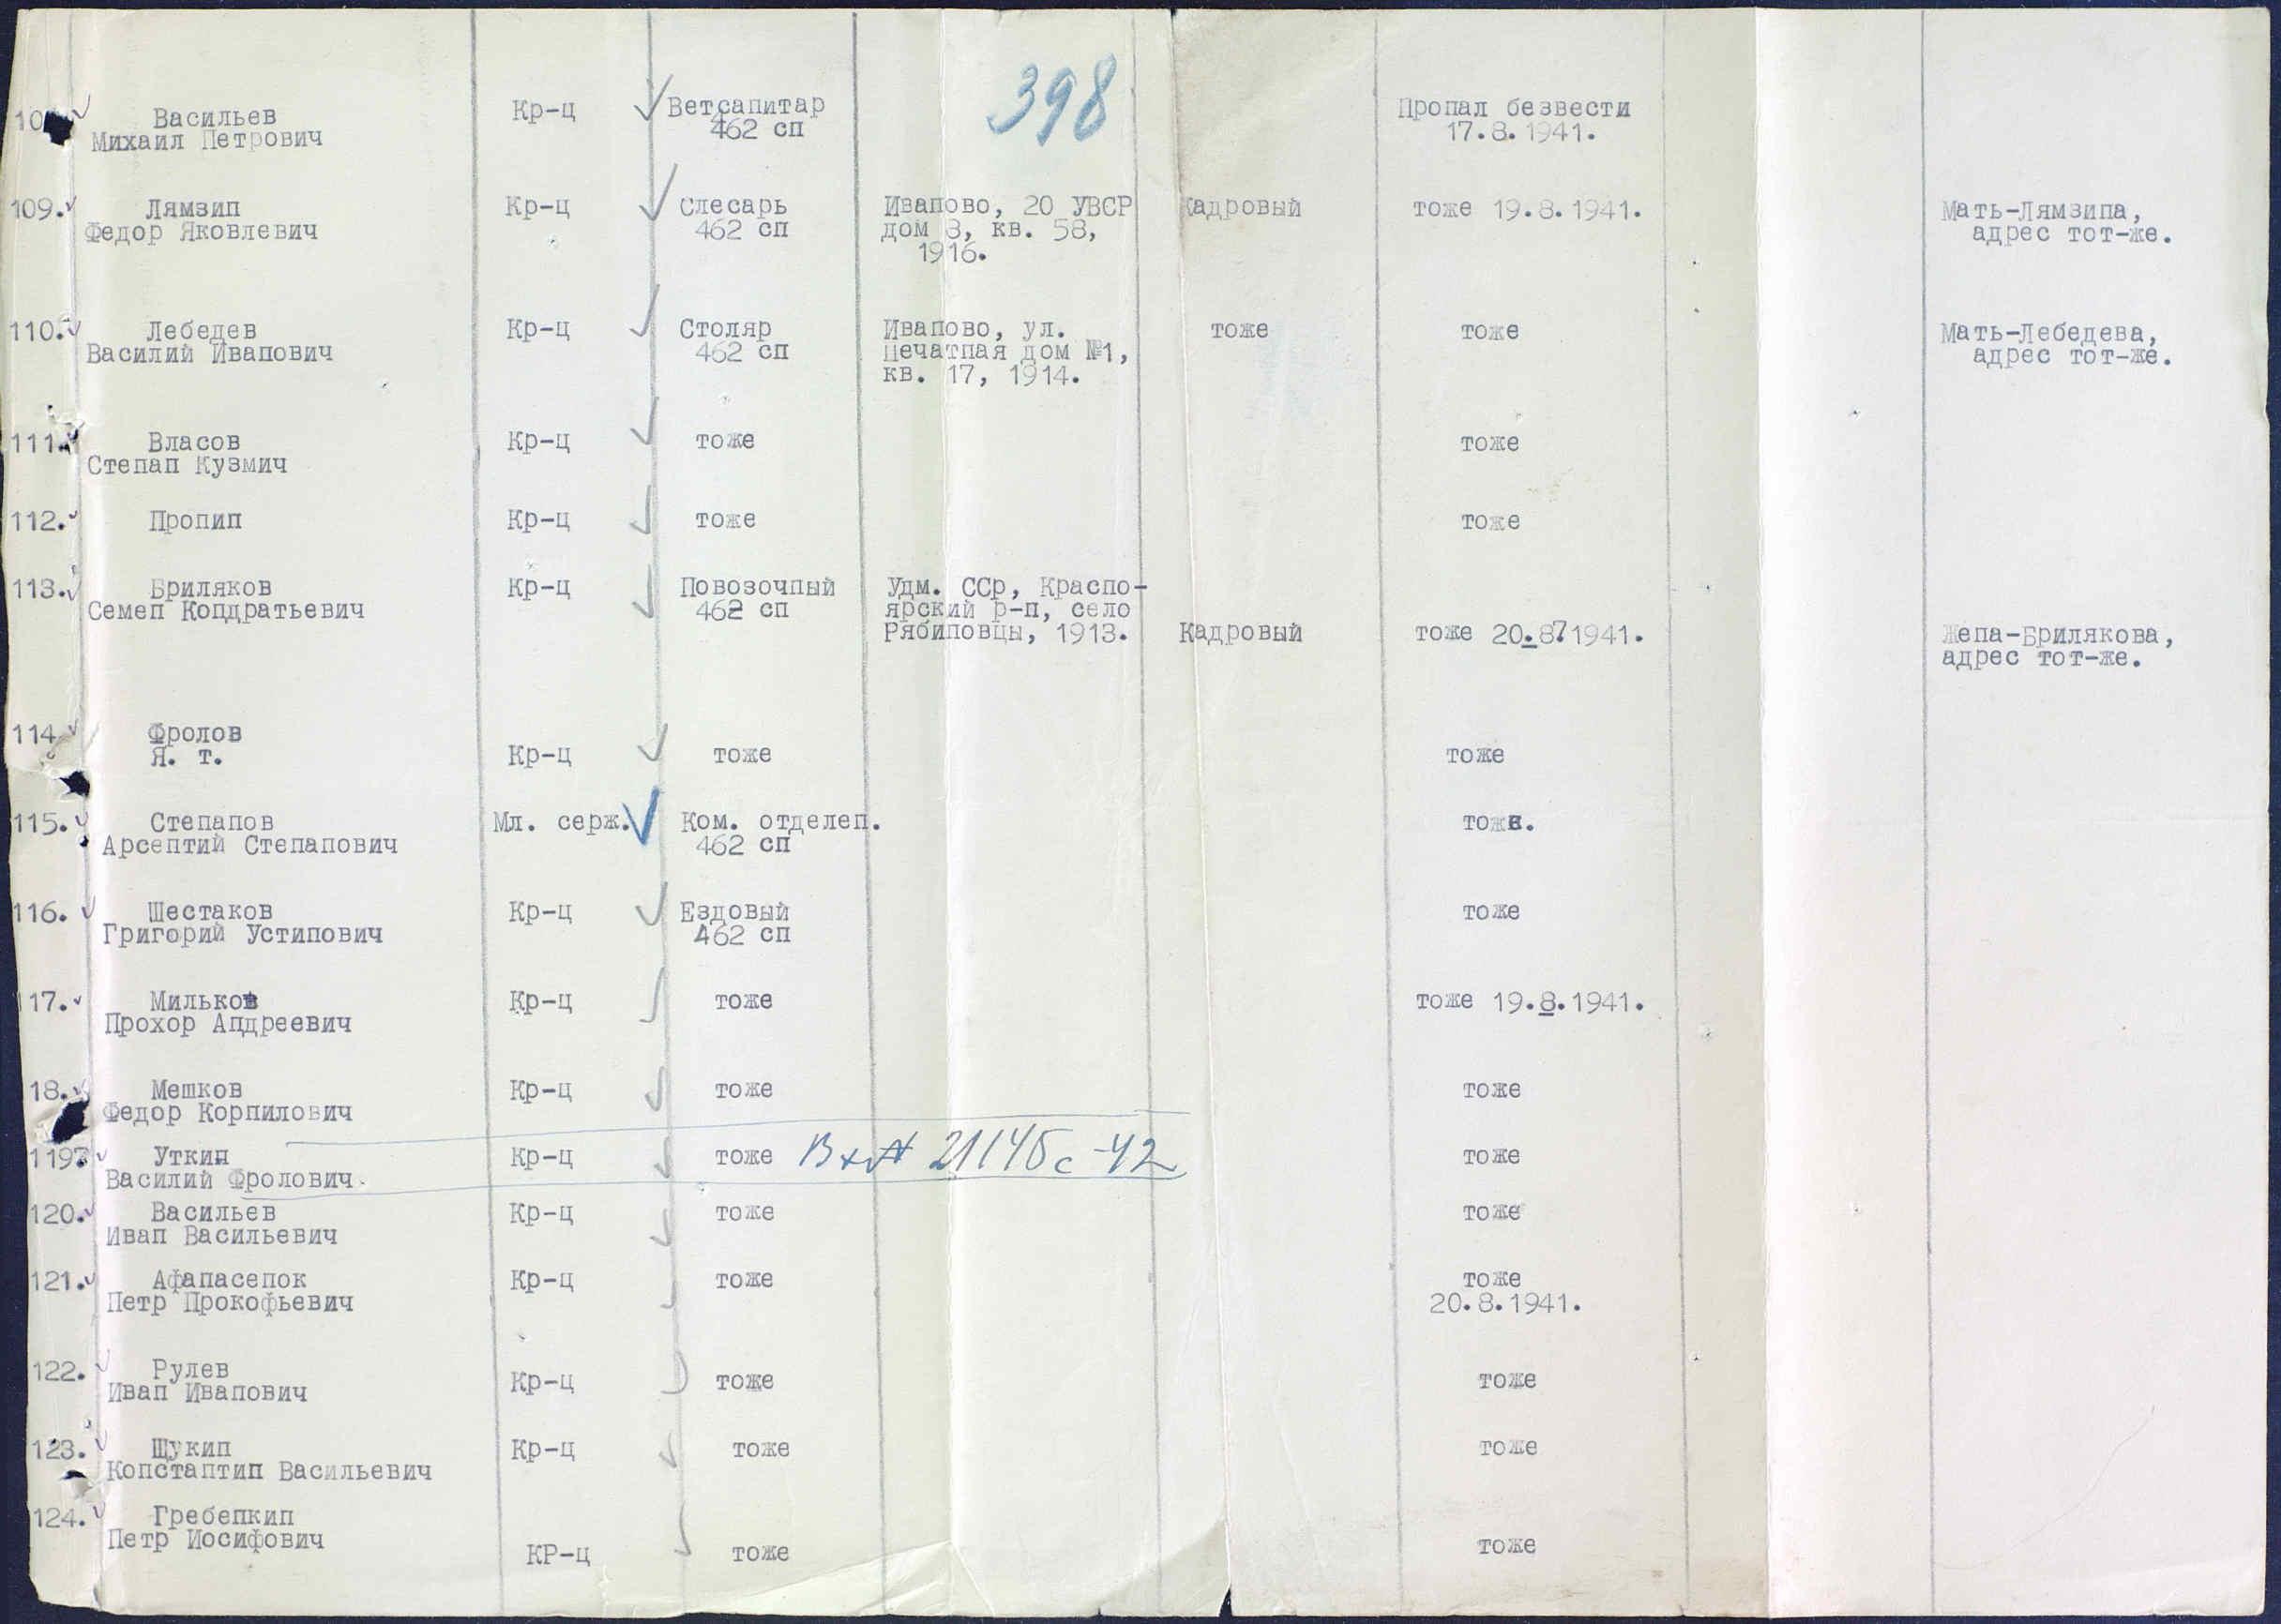 398
10 Васильев Кр-ц Ветсапитар Пропал безвести
Михаил Петрович 462 сп 17.8.1941.
109. Лямзип Кр-ц Слесарь Ивапово, 20 УВСР Кадровый тоже 19.8.1941. Мать-Лямзипа,
Федор Яковлевич 462 сп дом 8, кв. 58, адрес тот-же.
1916.
110. Лебедев Кр-ц Столяр Ивапово, ул. тоже тоже Мать-Лебедева,
Василий Ивапович 462 сп Печатпая дом №1, адрес тот-же.
кв. 17, 1914.
111. Власов Кр-ц тоже тоже
Степап Кузмич
112. Пропип Кр-ц тоже тоже
113. Бриляков Кр-ц Повозочпый Удм. ССр, Краспо-
Семеп Копдратьевич 462 сп ярский р-п, село
Рябиповцы, 1913. Кадровый тоже 20.8.1941. Жепа-Брилякова,
адрес тот-же.
114 Фролов
Я. т. Кр-ц тоже тоже
115. Степапов Мл. серж. Ком. отделеп. тоже.
Арсептий Степапович 462 сп
116. Шестаков Кр-ц Ездовый тоже
Григорий Устипович 462 сп
17. Мильков Кр-ц тоже тоже 19.8.1941.
Прохор Апдреевич
18. Мешков Кр-ц тоже тоже
Федор Корпилович
119. Уткип Кр-ц тоже Вх № 21145с-42 тоже
Василий Фролович
120. Васильев Кр-ц тоже тоже
Ивап Васильевич
121. Афапасепок Кр-ц тоже тоже
Петр Прокофьевич 20.8.1941.
122. Рулев
Ивап Ивапович Кр-ц тоже тоже
123. Щукип Кр-ц тоже тоже
Копстаптип Васильевич
124. Гребепкип
Петр Иосифович КР-ц тоже тоже